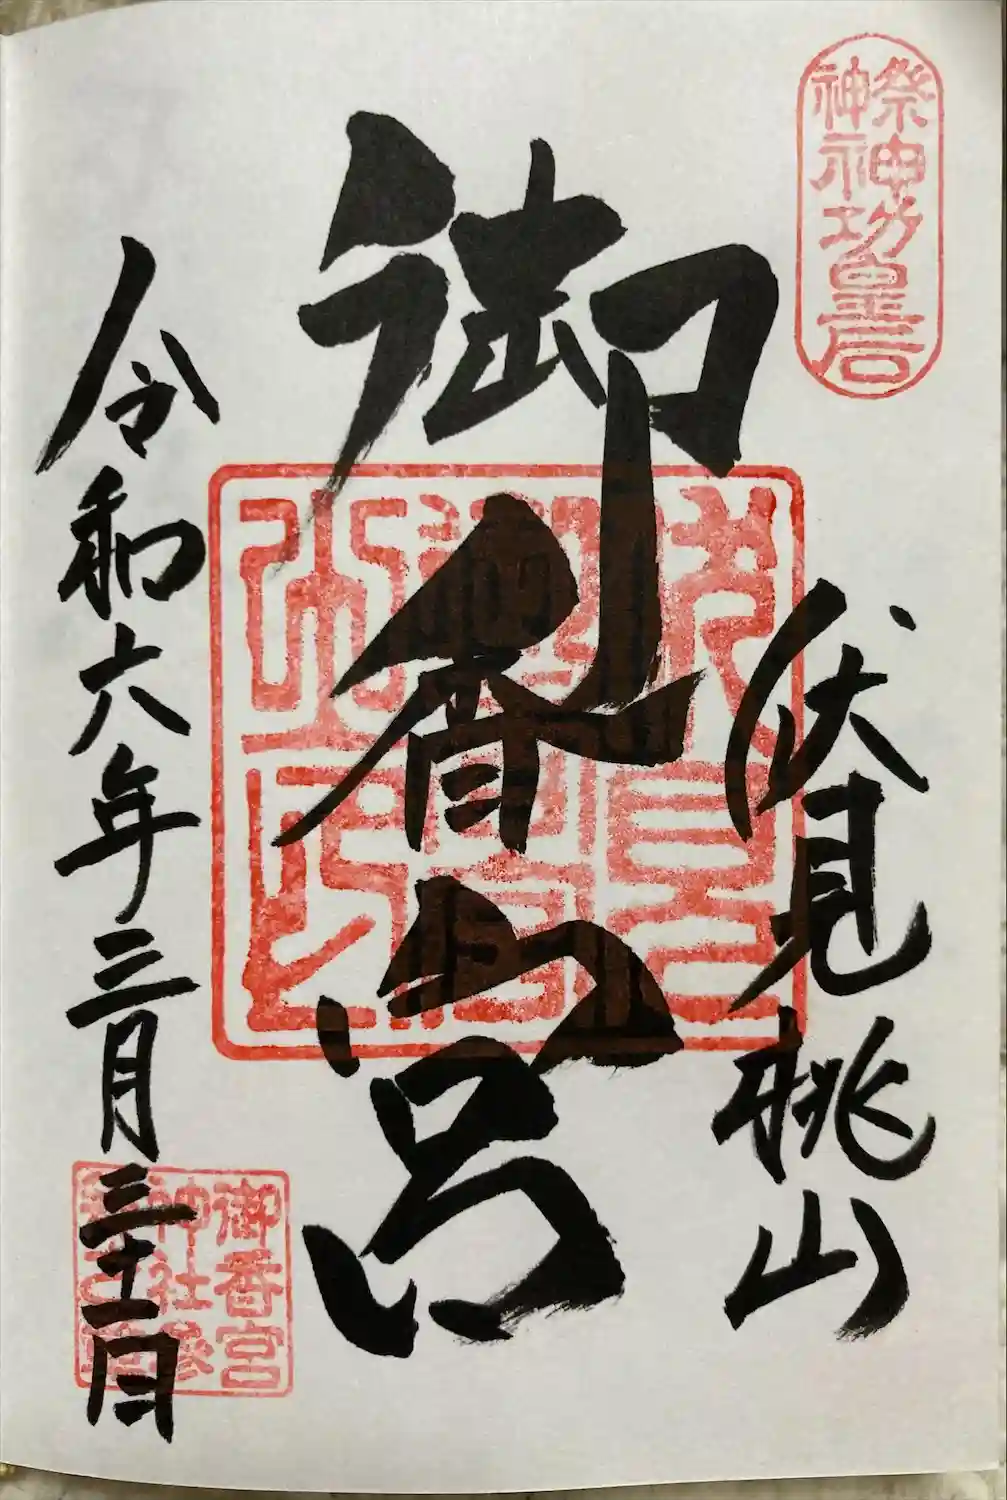 祭神
神功皇后
伏見桃山
御香宮
令和六年三月三十一日
御香宮
神社